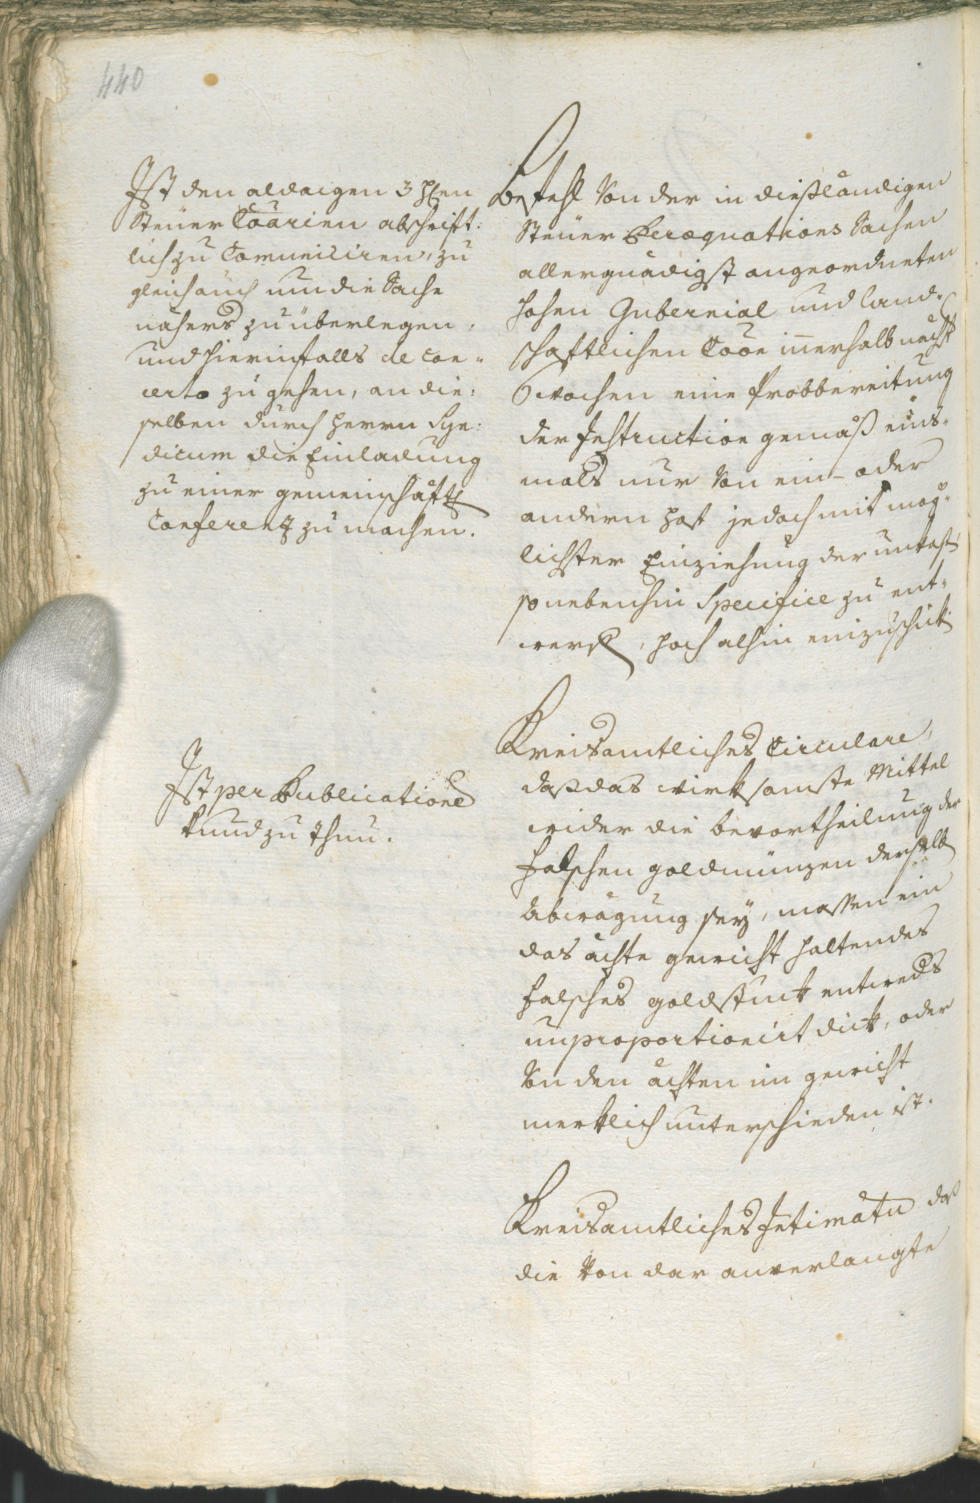 440
Ist den aldaigen 3 H̄en
Steuer Coãrien abschrift:
lich zu Com̄uniciren, zu
gleich auch um die Sache
nähers zu überlegen,
und hierinfalls de con-
certo zu gehen, an die:
selben durch Herrn Syn:
dicum die Einladung
zu einer gemeinschäftl
Conferenz zu machen.
Befehl Von der in dießländigen
Steüer Peræquations Sachen
allergnädigst angeordneten
hohen Gubernial und land-
schaftlichen Coōn innerhalb nächst
6 wochen eine Probbereitung
der Instruction gemäß eins-
mals nur Von ein- oder
andern Hof jedoch mit mög-
lichster Einziehung der unkost
so nebenhin Specifice zu ent-
werfen, hoch alhin einzuschick
Ist per Publicationē
kund zu thun.
Kreisamtliches Circulare,
daß das wirksamste Mittel
wider die bevortheilung der
falschen goldmünzen derselb
Abwägung sey, massen ein
das ächte gewicht haltendes
falsches goldstuck entweds
unproportionirt dick, oder
Von den ächten im gewicht
merklich unterschieden ist.
Kreisamtliches Intimatū daß
die Von dar anverlangte